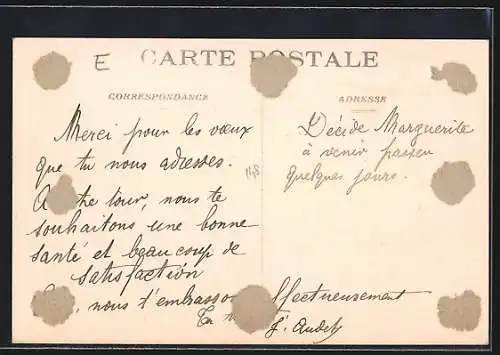 E
CARTE POSTALE
CORRESPONDANCE
ADRESSE
Merci pour les vœux
que tu nous adresses.
A tre tour, nous te
souhaitons une bonne
santé et beaucoup de
satisfaction
nous t'embrasso ffectueusement
Décide Marguerite
à venir passer
quelques jours.